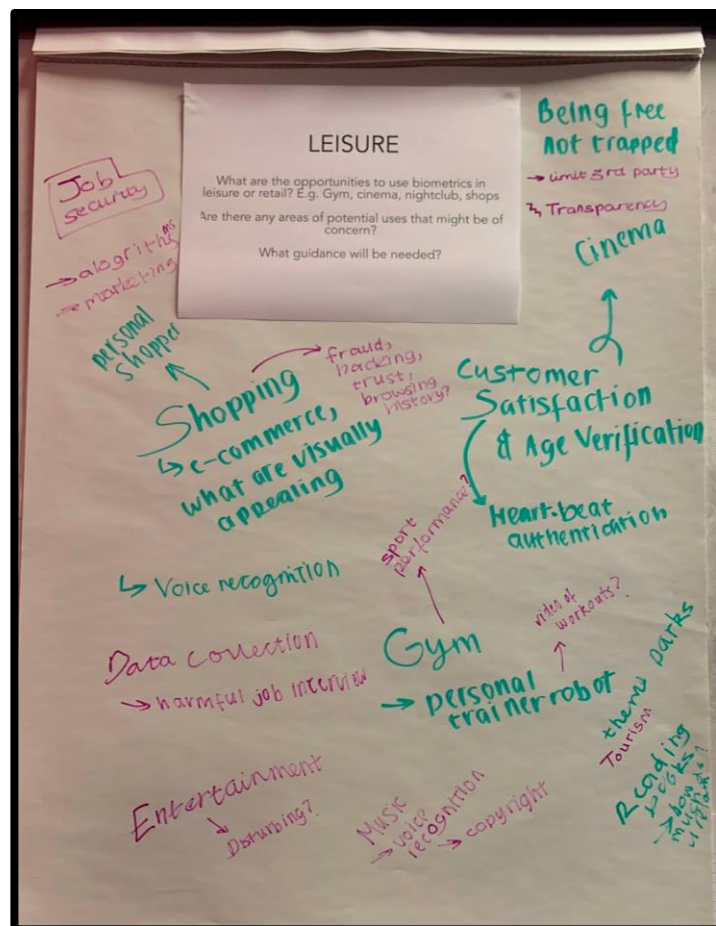 LEISURE
What are the opportunities to use biometrics in
leisure or retail? E.g. Gym, cinema, nightclub, shops
Are there any areas of potential uses that might be of
concern?
What guidance will be needed?
Being free
not trapped
→ limit 3rd party
↳ Transparency
Cinema
Job
security
→ alogrithms
→ marketing
personal
shopper
Shopping
↳ e-commerce,
what are visually
appealing
fraud,
hacking,
trust,
browsing
history?
Customer
Satisfaction
& Age Verification
Heart-beat
authentication
↳ Voice recognition
sport
performance?
Gym
→ personal
trainer robot
video of
workouts?
Data collection
→ harmful job interview
Entertainment
Disturbing?
Music
→ voice
recognition
→ copyright
theme parks
Tourism
Reading
books
→ how
much